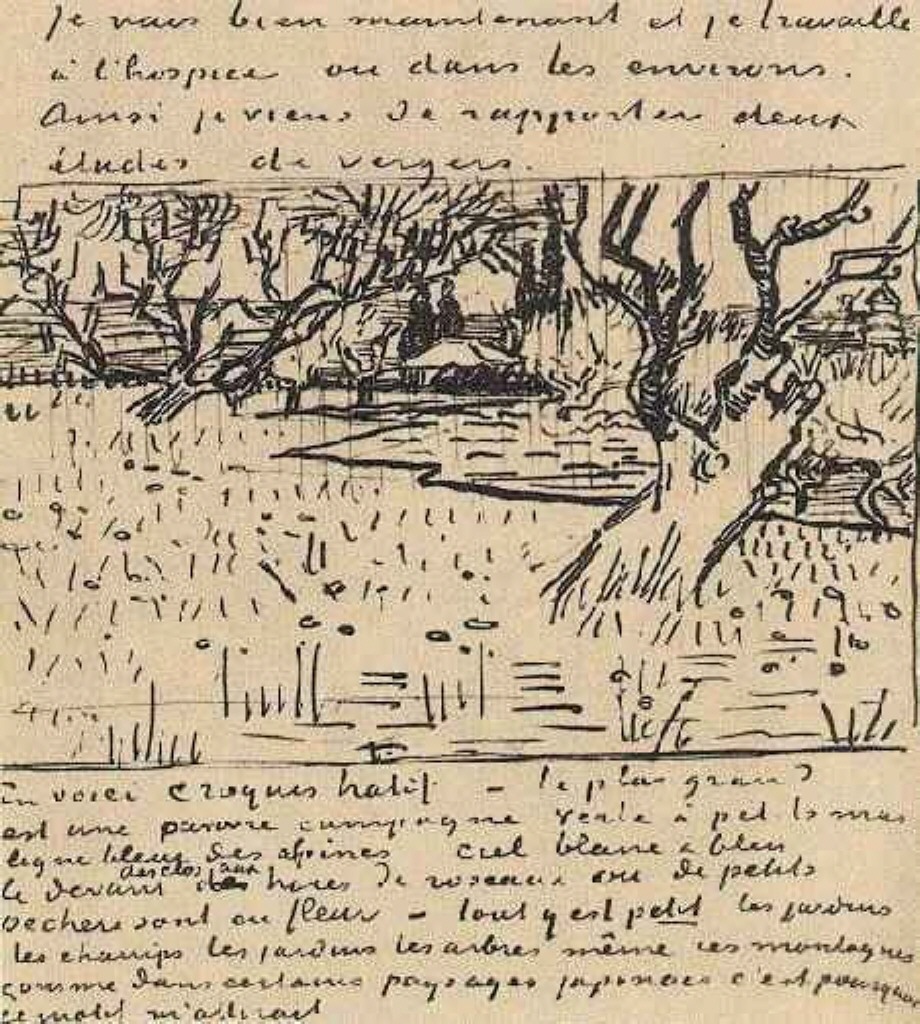 je vais bien maintenant et je travaille
à l'hospice ou dans les environs.
Ainsi je viens de rapporter deux
études de vergers.
En voici croquis hatif – le plus grand
est une pauvre campagne verte à petits mas
ligne bleue des alpines ciel blanc & bleu
le devant des clos aux haies de roseaux ou de petits
pechers sont en fleur – tout y est petit les jardins
les champs les jardins les arbres même ces montagnes
comme dans certains paysages japonais c'est pourquoi
ce motif m'attirait